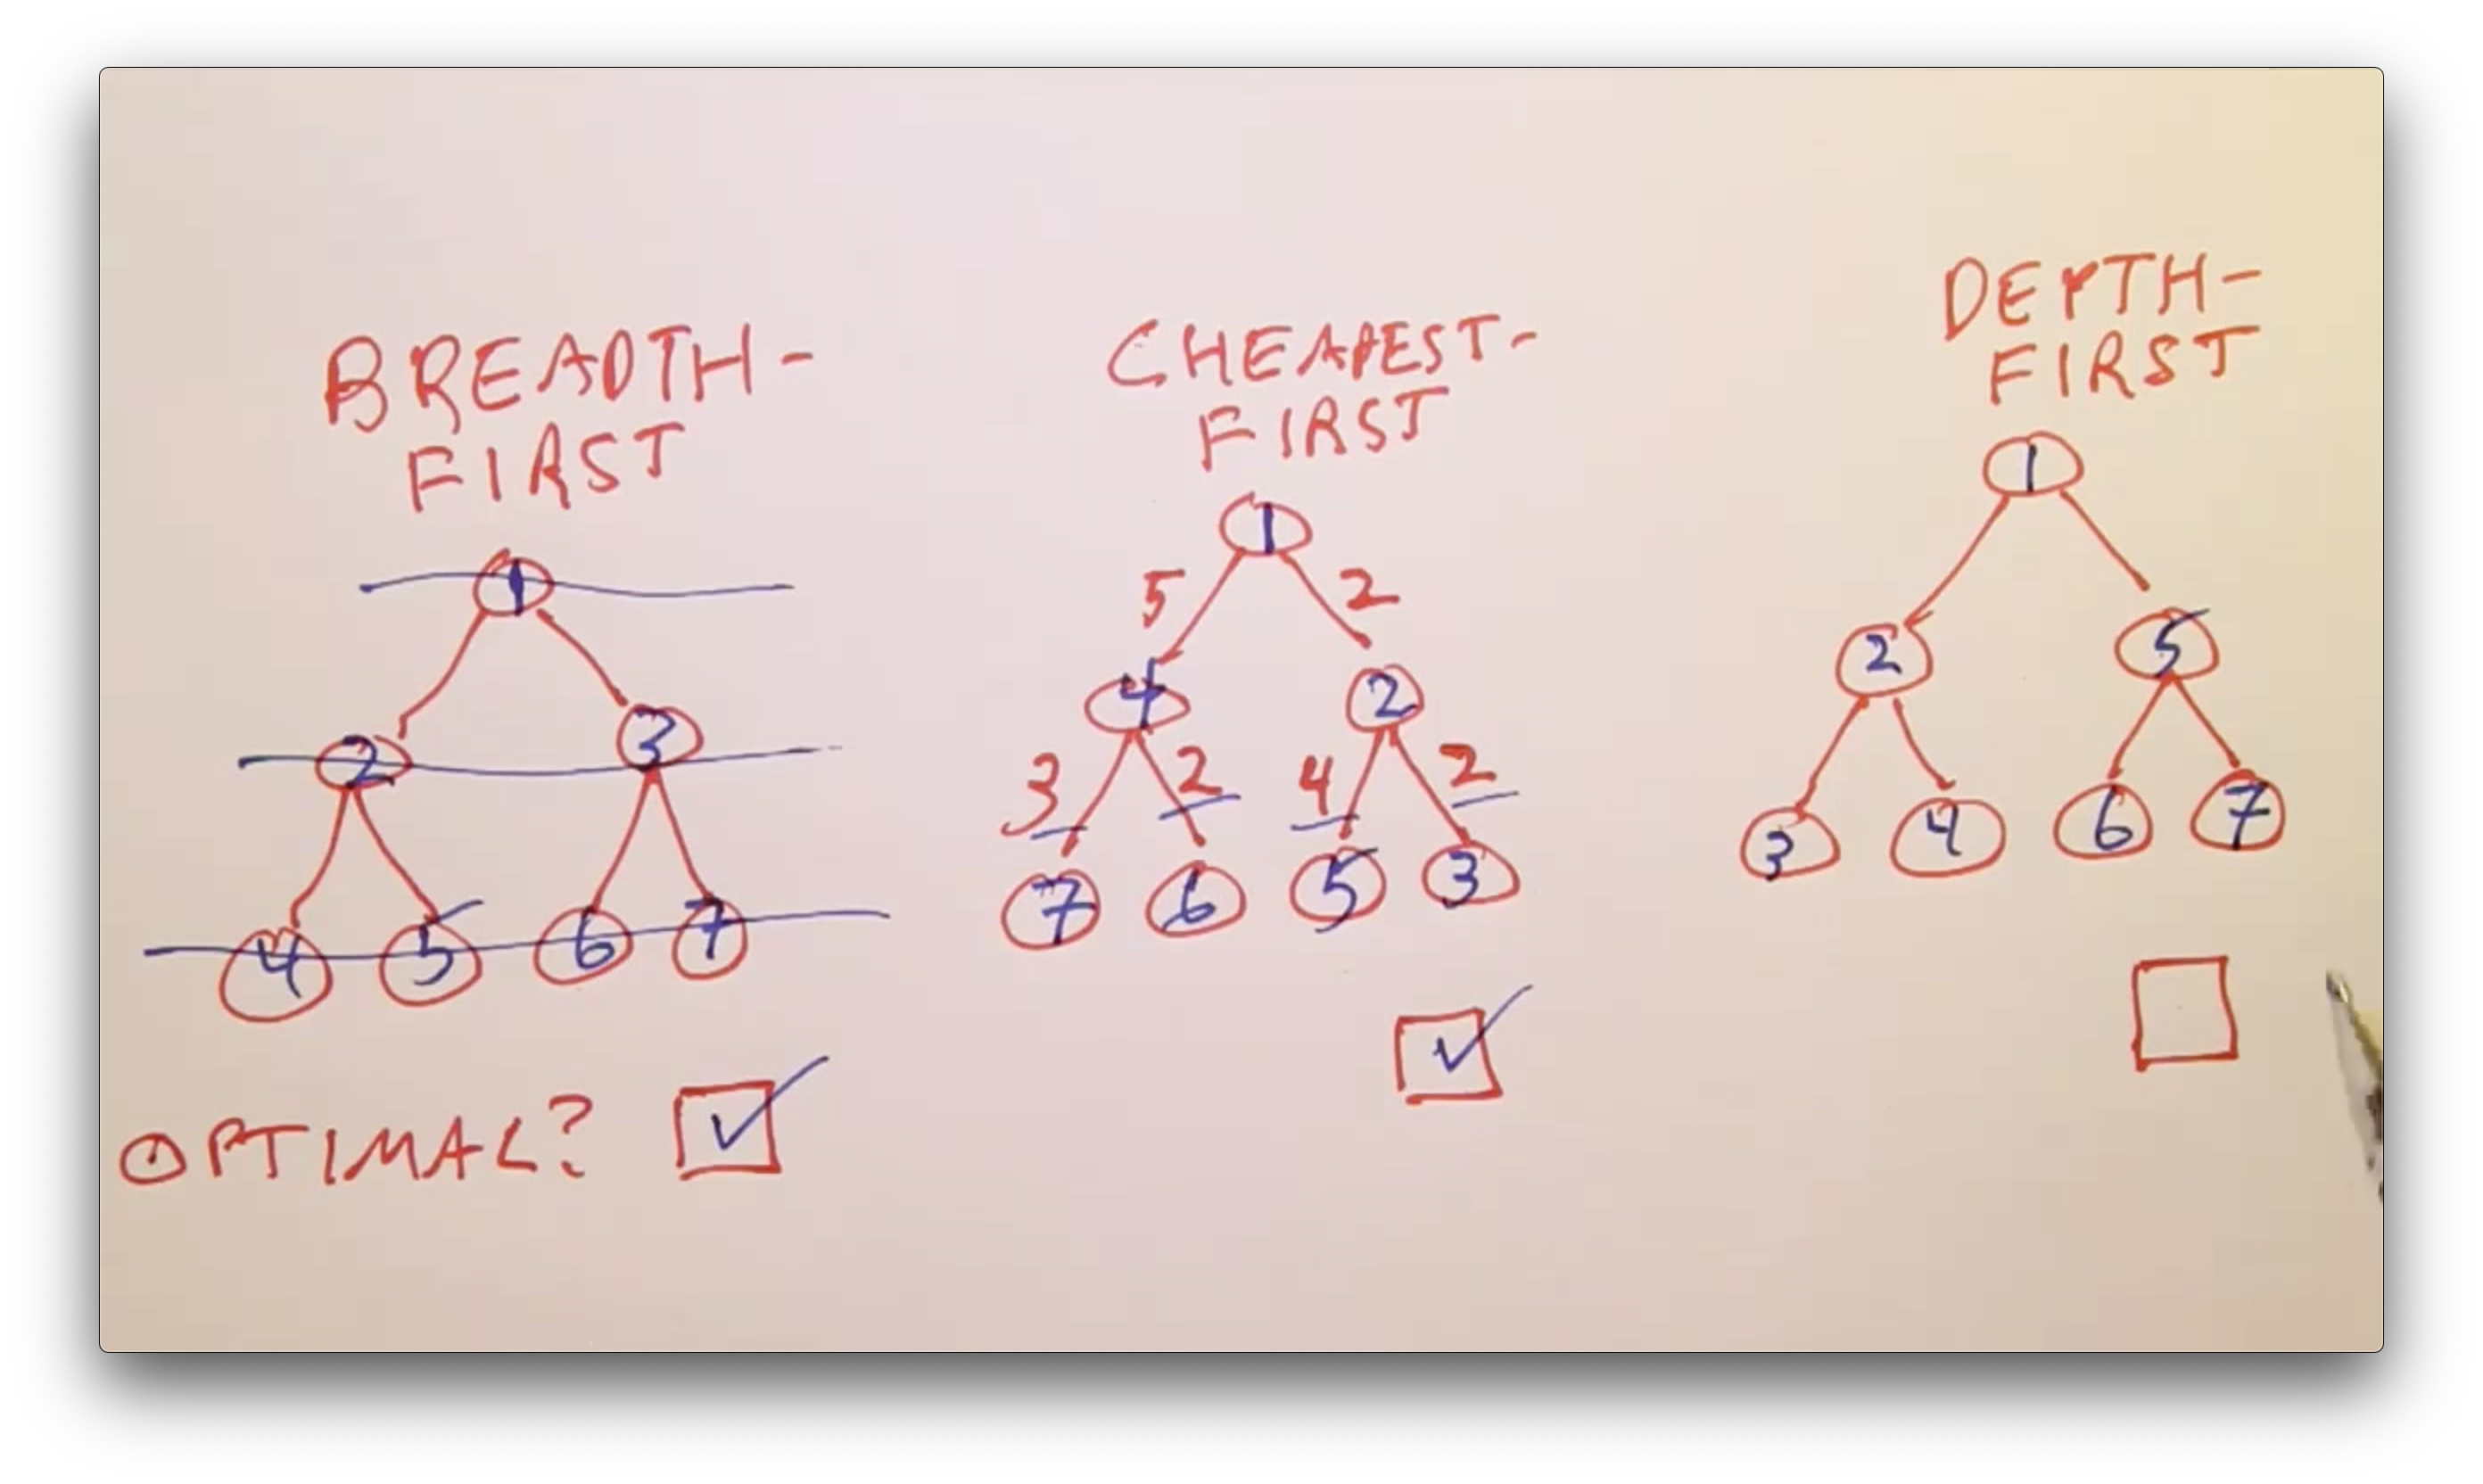 BREADTH-
FIRST
1
2 3
4 5 6 7
OPTIMAL? ✓
CHEAPEST-
FIRST
1
5 2
4 2
3 2 4 2
7 6 5 3
✓
DEPTH-
FIRST
1
2 5
3 4 6 7